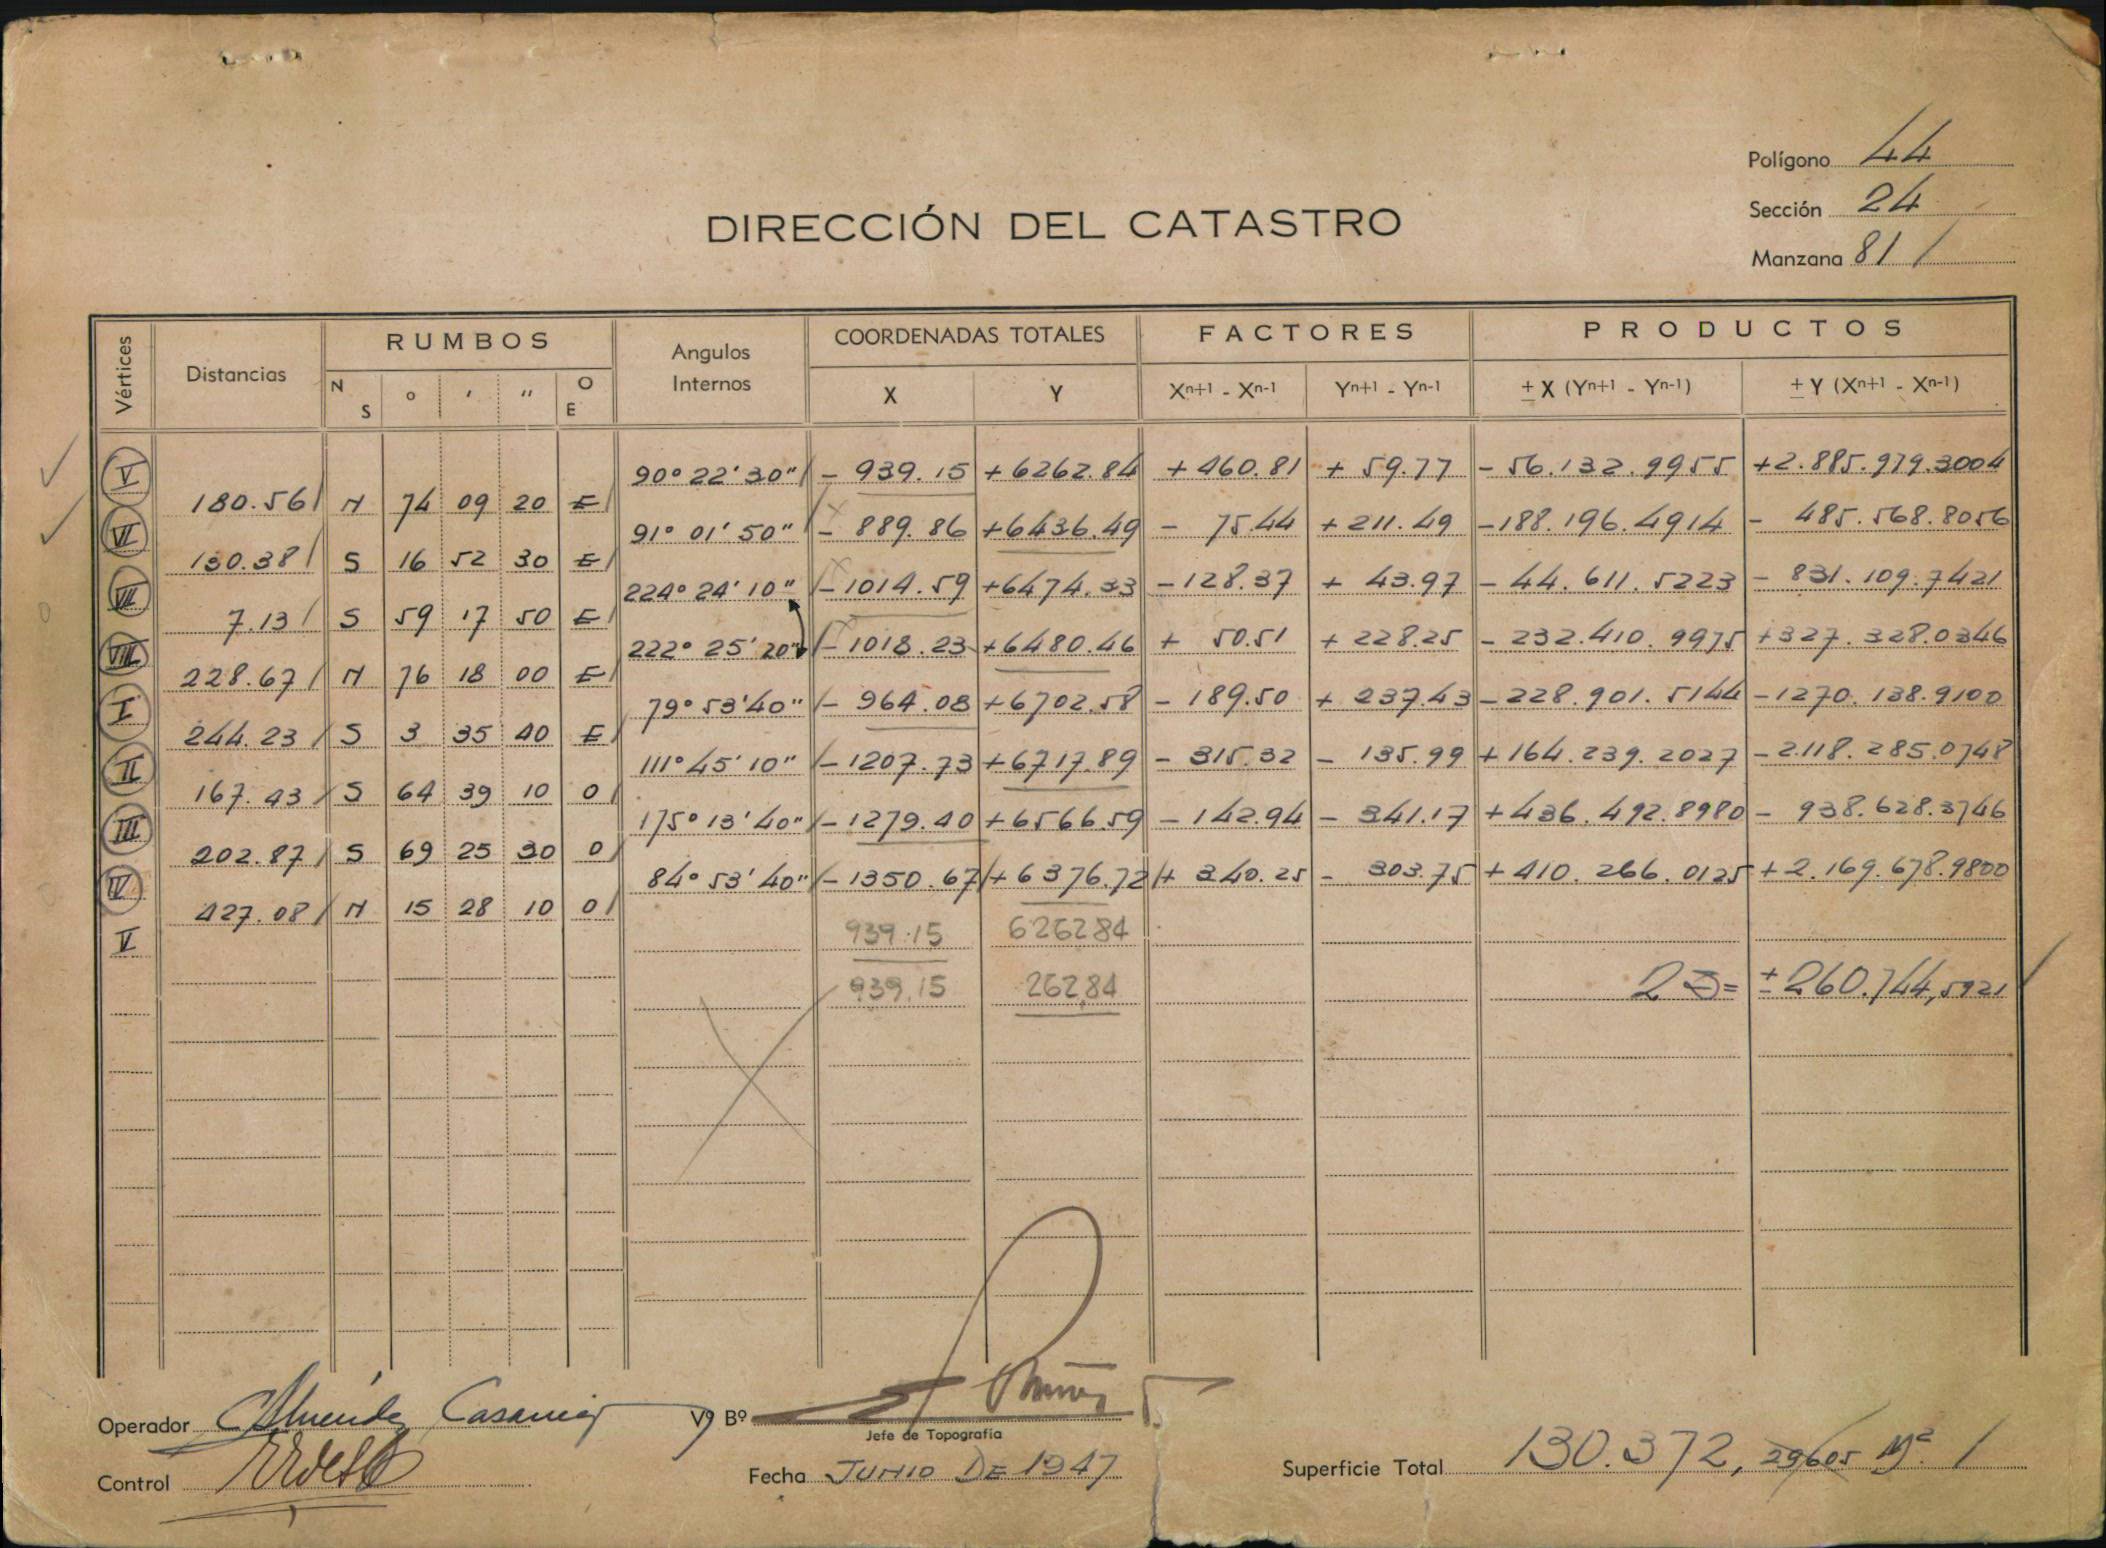 Polígono 44
Sección 24
DIRECCIÓN DEL CATASTRO
Manzana 81 /
Vértices Distancias RUMBOS Angulos Internos COORDENADAS TOTALES FACTORES PRODUCTOS
N S ° ' " O E X Y Xn+1 - Xn-1 Yn+1 - Yn-1 ± X (Yn+1 - Yn-1) ± Y (Xn+1 - Xn-1)
V 90° 22' 30" / - 939.15 + 6262.84 + 460.81 + 59.77 - 56.132.9955 + 2.885.979.3004
180.56 / N 74 09 20 E /
VI 91° 01' 50" / - 889.86 + 6436.49 - 75.44 + 211.49 - 188.196.4914 - 485.568.8056
130.38 / S 16 52 30 E /
VII 224° 24' 10" / - 1014.59 + 6474.33 - 128.37 + 43.97 - 44.611.5223 - 831.109.7421
7.13 / S 59 17 50 E /
VIII 222° 25' 20" / - 1018.23 + 6480.46 + 50.51 + 228.25 - 232.410.9975 + 327.328.0346
228.67 / N 76 18 00 E /
I 79° 53' 40" / - 964.08 + 6702.58 - 189.50 + 237.43 - 228.901.5144 - 1270.138.9100
244.23 / S 3 35 40 E /
II 111° 45' 10" / - 1207.73 + 6717.89 - 315.32 - 135.99 + 164.239.2027 - 2.118.285.0748
167.43 / S 64 39 10 O /
III 175° 13' 40" / - 1279.40 + 6566.59 - 142.94 - 341.17 + 436.492.8980 - 938.628.3746
202.87 / S 69 25 30 O /
IV 84° 53' 40" / - 1350.67 / + 6376.72 / + 340.25 - 303.75 + 410.266.0125 + 2.169.678.9800
427.08 / N 15 28 10 O /
V 939.15 6262.84
939.15 262.84 2 S = ± 260.744,5921
Operador
Vº Bº
Jefe de Topografía
Control
Fecha JUNIO DE 1947
Superficie Total 130.372, 29605 M². /